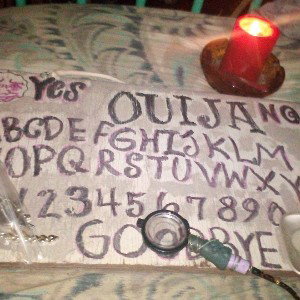 Yes OUIJA NO
ABCDEFGHIJKLM
OPQRSTUVWXY
1234567890
GOODBYE